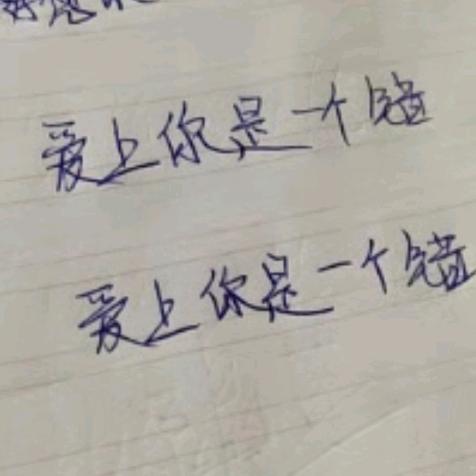 爱上你是一个错
爱上你是一个错